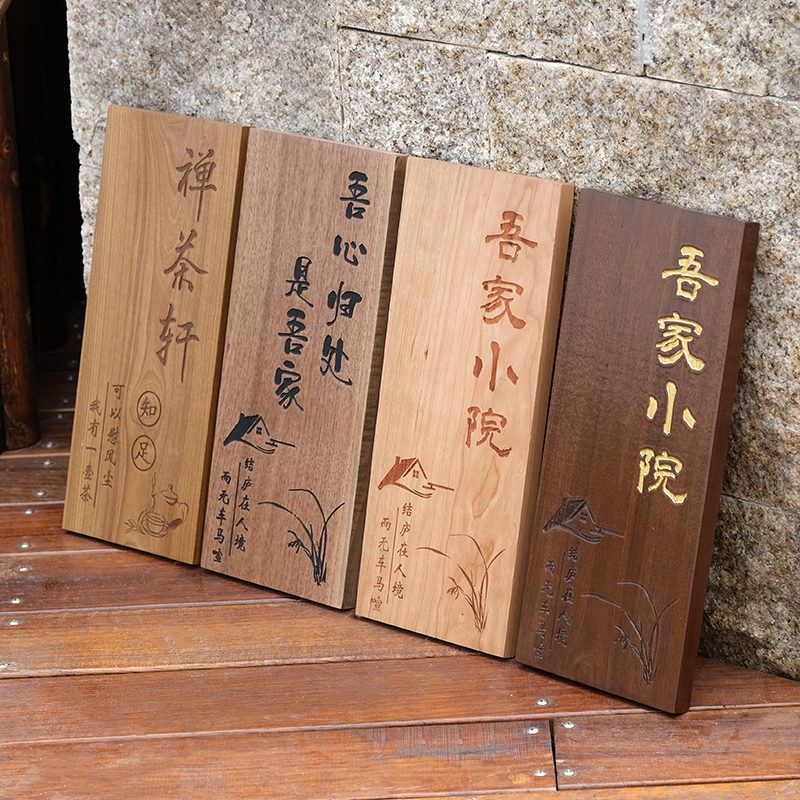 禅茶轩
知足
可以慰风尘
我有一壶茶
吾心归处
是吾家
结庐在人境
而无车马喧
吾家小院
结庐在人境
而无车马喧
吾家小院
结庐在人境
而无车马喧